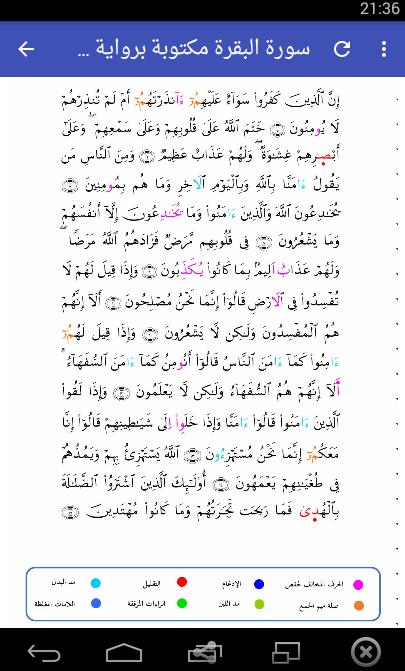 21:36
سورة البقرة مكتوبة برواية ...
إِنَّ ٱلَّذِينَ كَفَرُوا۟ سَوَآءٌ عَلَيْهِمُۥٓ ءَآنذَرْتَهُمُۥٓ أَمْ لَمْ تُنذِرْهُمْ
لَا يُومِنُونَ ۝ خَتَمَ ٱللَّهُ عَلَىٰ قُلُوبِهِمْ وَعَلَىٰ سَمْعِهِمْ ۖ وَعَلَىٰٓ
أَبْصَٰرِهِمْ غِشَٰوَةٌ ۖ وَلَهُمْ عَذَابٌ عَظِيمٌ ۝ وَمِنَ ٱلنَّاسِ مَن
يَقُولُ ءَامَنَّا بِٱللَّهِ وَبِٱلْيَوْمِ ٱلَاخِرِ وَمَا هُم بِمُومِنِينَ ۝
يُخَٰدِعُونَ ٱللَّهَ وَٱلَّذِينَ ءَامَنُوا۟ وَمَا يُخَٰدِعُونَ إِلَّآ أَنفُسَهُمْ
وَمَا يَشْعُرُونَ ۝ فِى قُلُوبِهِم مَّرَضٌ فَزَادَهُمُ ٱللَّهُ مَرَضًا ۖ
وَلَهُمْ عَذَابٌ اَلِيمٌۢ بِمَا كَانُوا۟ يُكَذِّبُونَ ۝ وَإِذَا قِيلَ لَهُمْ لَا
تُفْسِدُوا۟ فِى ٱلَارْضِ قَالُوٓا۟ إِنَّمَا نَحْنُ مُصْلِحُونَ ۝ أَلَآ إِنَّهُمْ
هُمُ ٱلْمُفْسِدُونَ وَلَٰكِن لَّا يَشْعُرُونَ ۝ وَإِذَا قِيلَ لَهُمُۥٓ
ءَامِنُوا۟ كَمَآ ءَامَنَ ٱلنَّاسُ قَالُوٓا۟ أَنُومِنُ كَمَآ ءَامَنَ ٱلسُّفَهَآءُ ۗ
أَلَآ إِنَّهُمْ هُمُ ٱلسُّفَهَآءُ وَلَٰكِن لَّا يَعْلَمُونَ ۝ وَإِذَا لَقُوا۟
ٱلَّذِينَ ءَامَنُوا۟ قَالُوٓا۟ ءَامَنَّا وَإِذَا خَلَوِا۟ اِلَىٰ شَيَٰطِينِهِمْ قَالُوٓا۟ إِنَّا
مَعَكُمُۥٓ إِنَّمَا نَحْنُ مُسْتَهْزِءُونَ ۝ ٱللَّهُ يَسْتَهْزِئُ بِهِمْ وَيَمُدُّهُمْ
فِى طُغْيَٰنِهِمْ يَعْمَهُونَ ۝ أُو۟لَٰٓئِكَ ٱلَّذِينَ ٱشْتَرَوُا۟ ٱلضَّلَٰلَةَ
بِٱلْهُدَىٰ فَمَا رَبِحَت تِّجَٰرَتُهُمْ وَمَا كَانُوا۟ مُهْتَدِينَ ۝
الحرف المخالف لحفص الإدغام التقليل مد البدل
صلة ميم الجمع مد اللين الراءات المرققة اللامات المغلظة